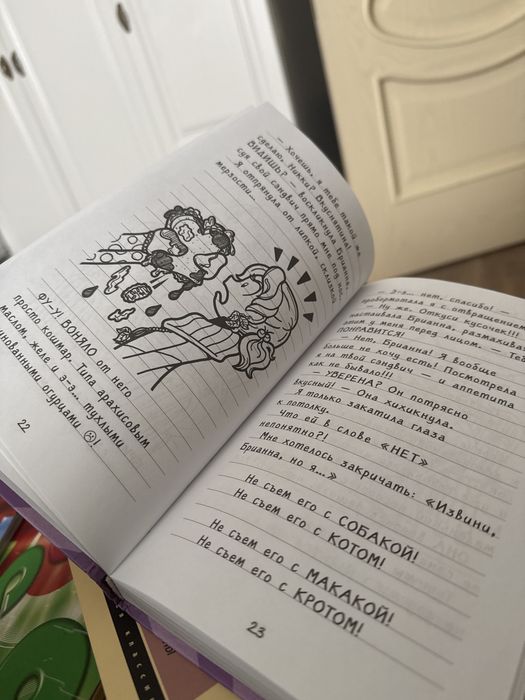 — Хочешь, я тебе такой же
сделаю, Никки? Вкуснятина!
ВИДИШЬ? — воскликнула Брианна,
суя свой сэндвич прямо мне под нос.
Я отпрянула от липкой, склизкой
мерзости...
ФУ-У! ВОНЯЛО от него
просто кошмар. Типа арахисовым
маслом, желе и э-э... тухлыми
инованными огурцами ☹!
22
— Э-э... нет, спасибо! —
пробормотала я с отвращением.
— Ну же. Откуси кусочек!!! —
настаивала Брианна, размахивая
этим у меня перед лицом. — Теб
ПОНРАВИТСЯ!
— Нет, Брианна! Я вообще
больше не хочу есть! Посмотрела
я на твой сэндвич — и аппетита
как не бывало!!!
— УВЕРЕНА? Он потрясно
вкусный! — Она хихикнула.
Я только закатила глаза
к потолку.
Что ей в слове «НЕТ»
непонятно?!
Мне хотелось закричать: «Извини,
Брианна, но я...»
Не съем его с СОБАКОЙ!
Не съем его с КОТОМ!
Не съем его с МАКАКОЙ!
Не съем его с КРОТОМ!
23